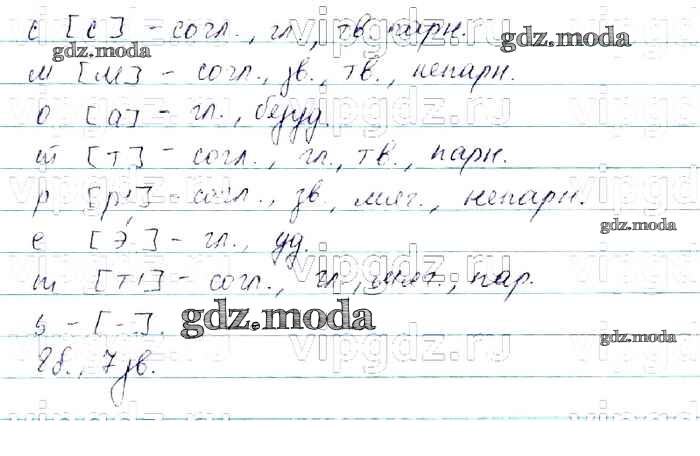 с [с] - согл., гл., тв. парн.
м [м] - согл., зв., тв., непарн.
о [а] - гл., безуд.
т [т] - согл., гл., тв., парн.
р [р'] - согл., зв., мяг., непарн.
е [э́] - гл., уд.
т [т'] - согл., гл., мяг., пар.
ь - [-].
8б., 7 зв.
gdz.moda
gdz.moda
gdz.moda
gdz.moda
gdz.moda
vipgdz.ru